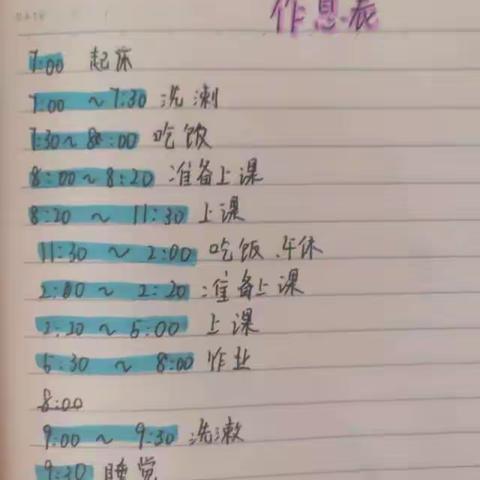 作息表
7:00 起床
7:00 ~ 7:30 洗漱
7:30 ~ 8:00 吃饭
8:00 ~ 8:20 准备上课
8:20 ~ 11:30 上课
11:30 ~ 2:00 吃饭、午休
2:00 ~ 2:20 准备上课
2:20 ~ 5:00 上课
5:30 ~ 8:00 作业
8:00
9:00 ~ 9:30 洗漱
9:30 睡觉